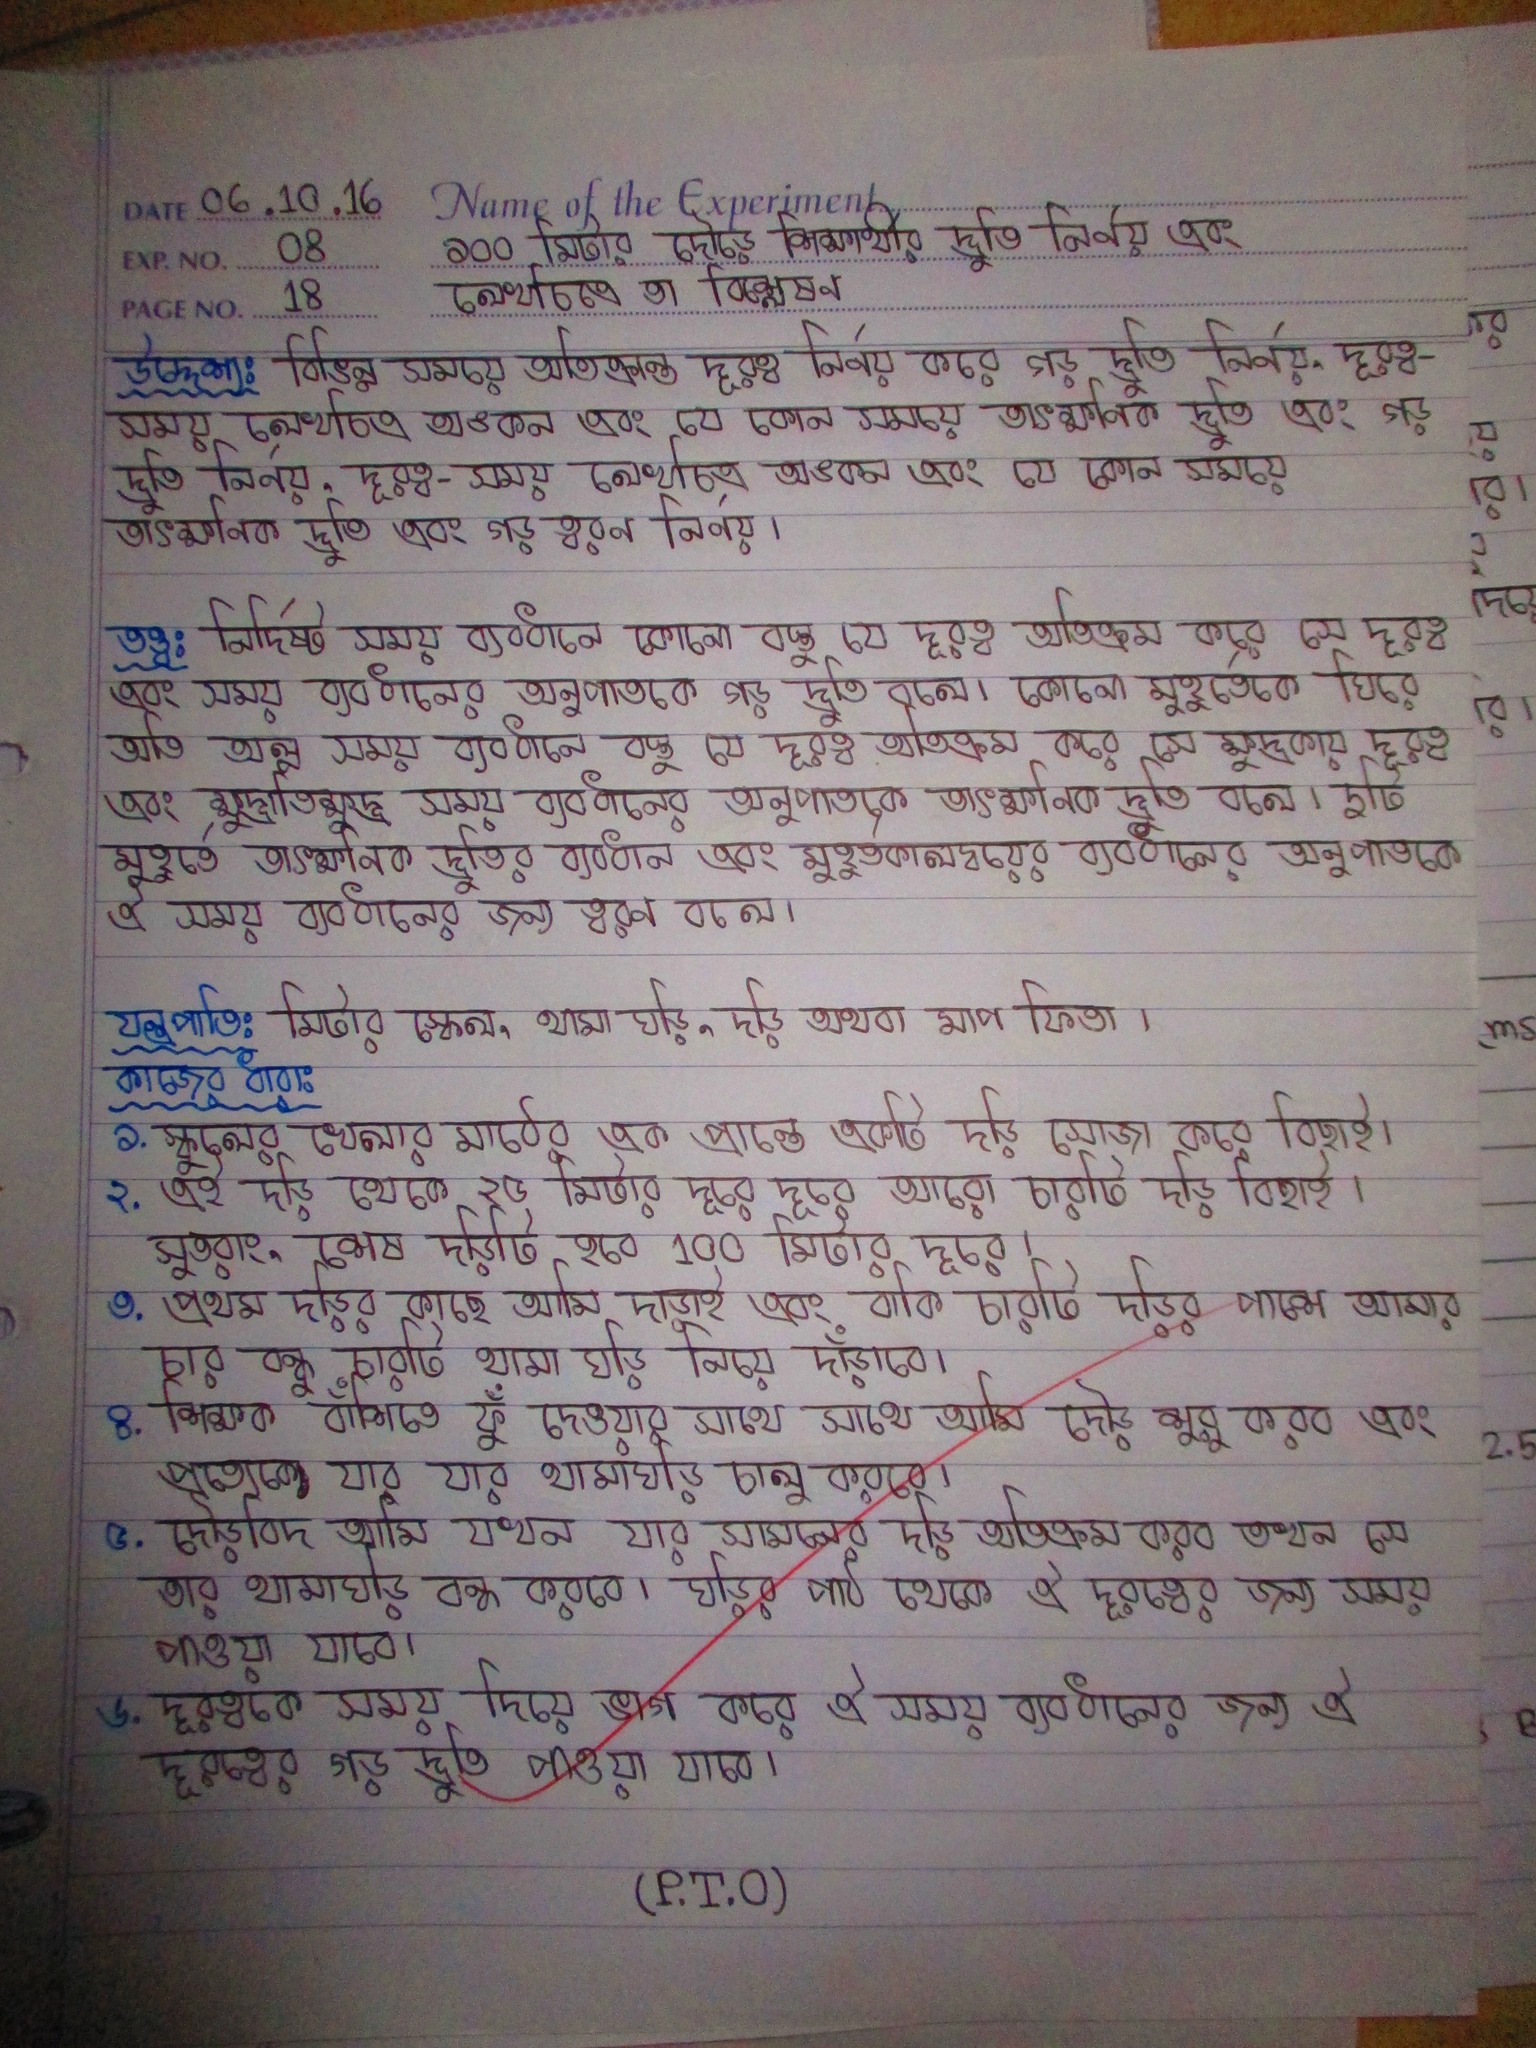 DATE 06.10.16 Name of the Experiment
EXP. NO. 08 ১০০ মিটার দৌড়ে শিক্ষার্থীর দ্রুতি নির্ণয় এবং
PAGE NO. 18 লেখচিত্রে তা বিশ্লেষণ
উদ্দেশ্যঃ বিভিন্ন সময়ে অতিক্রান্ত দূরত্ব নির্ণয় করে গড় দ্রুতি নির্ণয়, দূরত্ব-
সময় লেখচিত্র অঙকন এবং যে কোন সময়ে তাৎক্ষনিক দ্রুতি এবং গড়
দ্রুতি নির্নয়, দূরত্ব-সময় লেখচিত্র অঙকন এবং যে কোন সময়ে
তাৎক্ষনিক দ্রুতি এবং গড় ত্বরন নির্নয়।
তত্ত্বঃ নির্দিষ্ট সময় ব্যবধানে কোনো বস্তু যে দূরত্ব অতিক্রম করে সে দূরত্ব
এবং সময় ব্যবধানের অনুপাতকে গড় দ্রুতি বলে। কোনো মুহূর্তকে ঘিরে
অতি অল্প সময় ব্যবধানে বস্তু যে দূরত্ব অতিক্রম করে সে ক্ষুদ্রকায় দূরত্ব
এবং ক্ষুদ্রাতিক্ষুদ্র সময় ব্যবধানের অনুপাতকে তাৎক্ষনিক দ্রুতি বলে। দুটি
মুহূর্তে তাৎক্ষনিক দ্রুতির ব্যবধান এবং মুহূর্তকালদ্বয়ের ব্যবধানের অনুপাতকে
ঐ সময় ব্যবধানের জন্য ত্বরন বলে।
যন্ত্রপাতিঃ মিটার স্কেল, থামা ঘড়ি, দড়ি অথবা মাপ ফিতা।
কাজের ধারাঃ
১. স্কুলের খেলার মাঠের এক প্রান্তে একটি দড়ি সোজা করে বিছাই।
২. এই দড়ি থেকে ২৫ মিটার দূরে দূরে আরো চারটি দড়ি বিছাই।
সুতরাং, শেষ দড়িটি হবে 100 মিটার দূরে।
৩. প্রথম দড়ির কাছে আমি দাড়াই এবং বাকি চারটি দড়ির পাশে আমার
চার বন্ধু চারটি থামা ঘড়ি নিয়ে দাঁড়াবে।
৪. শিক্ষক বাঁশিতে ফুঁ দেওয়ার সাথে সাথে আমি দৌড় শুরু করব এবং
প্রত্যেকে যার যার থামাঘড়ি চালু করবে।
৫. দৌড়বিদ আমি যখন যার সামনের দড়ি অতিক্রম করব তখন সে
তার থামাঘড়ি বন্ধ করবে। ঘড়ির পাঠ থেকে ঐ দূরত্বের জন্য সময়
পাওয়া যাবে।
৬. দূরত্বকে সময় দিয়ে ভাগ করে ঐ সময় ব্যবধানের জন্য ঐ
দূরত্বের গড় দ্রুতি পাওয়া যাবে।
(P.T.O)